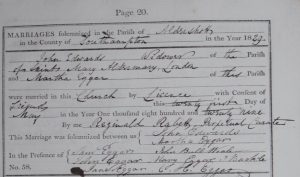 Page 20.
MARRIAGES solemnized in the Parish of Aldershot
in the County of Southampton in the Year 1829
John Edwards Widower of the Parish
of Saints Mary Aldermary, London
and Martha Eggar of this Parish
were married in this Church by Licence with Consent of
this twenty first Day of
May in the Year One thousand eight hundred and twenty nine
By me Reginald Rabett Perpetual Curate
This Marriage was solemnized between us John Edwards
Martha Eggar
In the Presence of Sam Eggar
John Eggar
No. 58. Jane Eggar